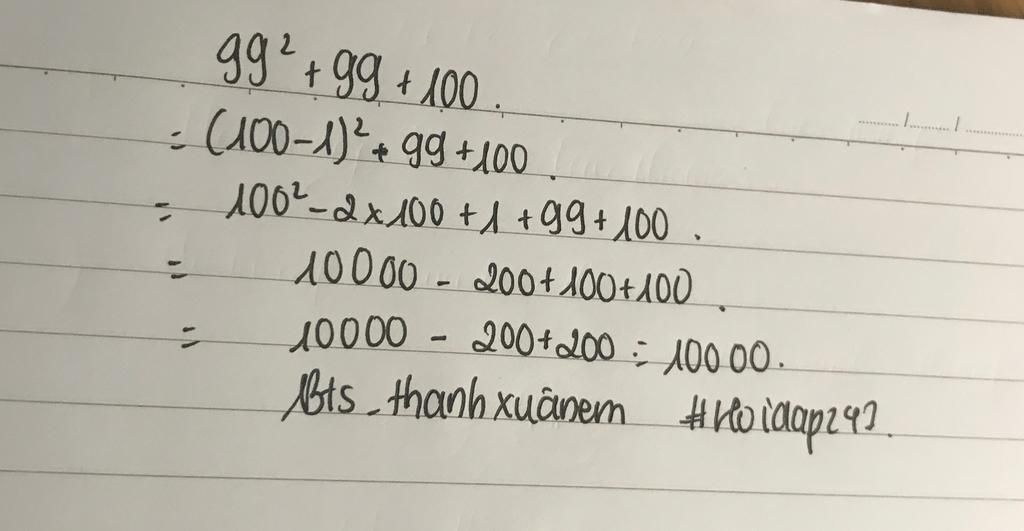 99² + 99 + 100.
= (100-1)² + 99 + 100.
= 100² - 2 x 100 + 1 + 99 + 100.
= 10000 - 200 + 100 + 100.
= 10000 - 200 + 200 = 10000.
Bts_thanhxuânem #Hoidap247.